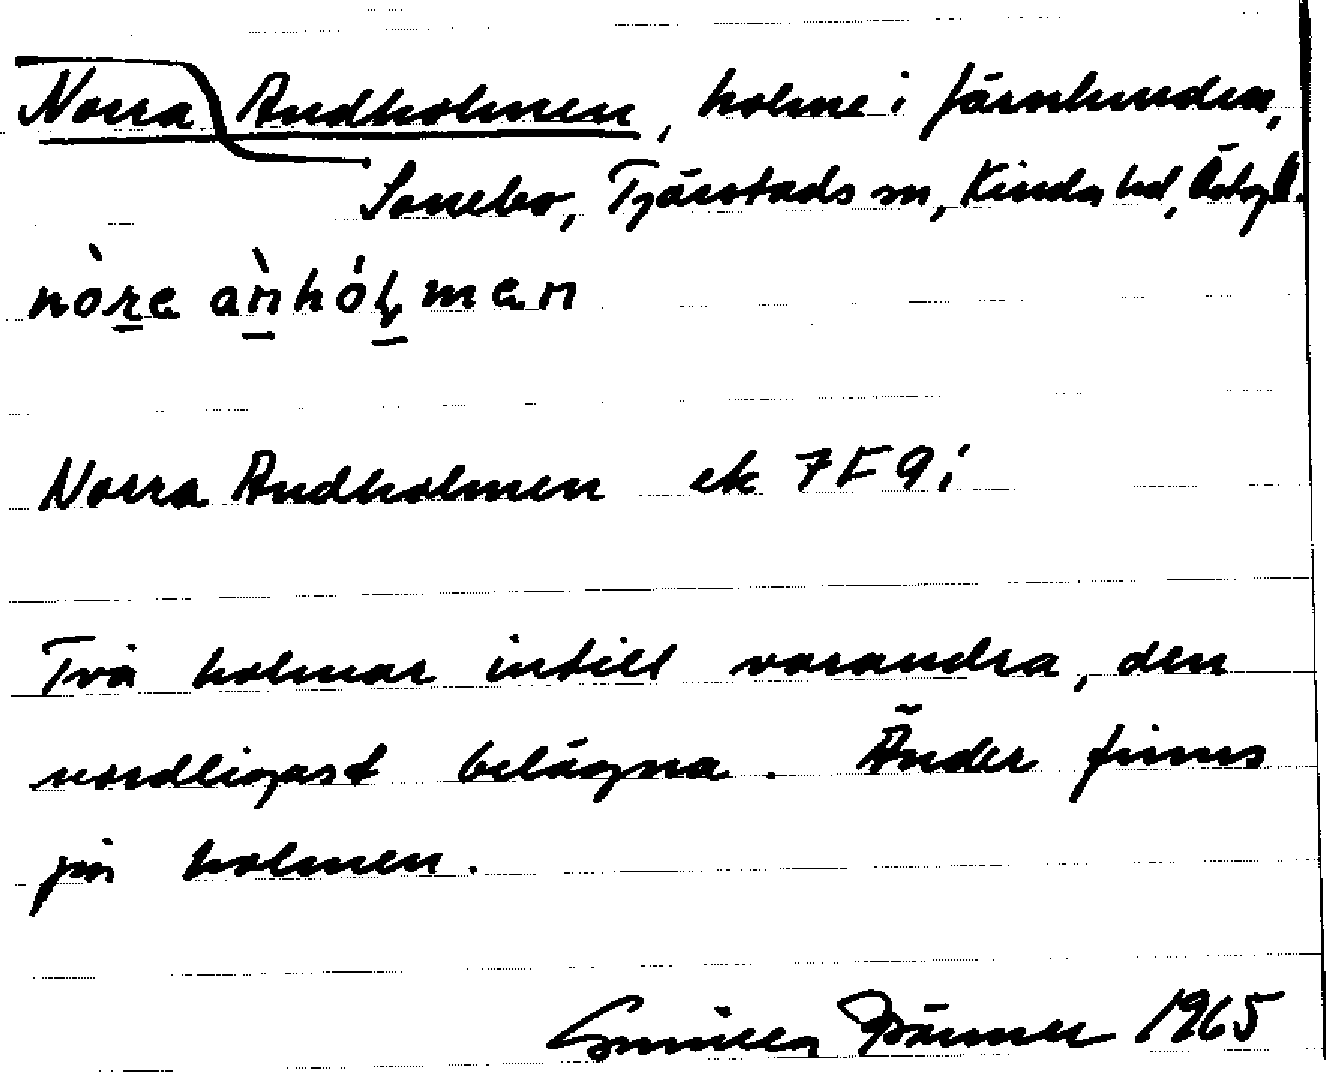 Norra Andholmen, holme i Järnlunden,
Sonebo, Tjärstads sn, Kinda hd, Östergl.
nòre àn̄hólmen
Norra Andholmen ek 7F9i
Två holmar intill varandra, den
nordligast belägna. Änder finns
på holmen.
Gunilla 1965